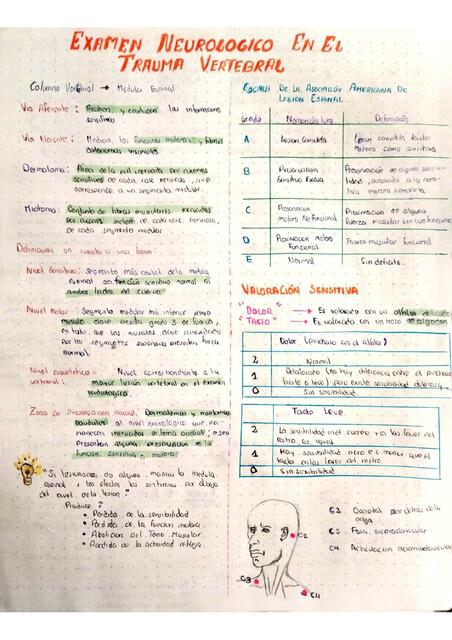 EXAMEN NEUROLOGICO EN EL
TRAUMA VERTEBRAL
Columna Vertebral → Medula Espinal
Via Aferente: Reciben y conducen las informaciones
sensitivas
Via Eferente: Median las funciones motoras y fibras
autonomas viscerales
Dermatoma: Area de la piel inervada por axones
sensitivos de cada raiz nerviosa, que
corresponde a un segmento medular.
Miotoma: Conjunto de fibras musculares inervadas
por axones motores de cada raiz nerviosa,
de cada segmento medular.
Definiciones en cuanto a una lesion:
Nivel Sensitivo: Segmento más caudal de la medula
espinal con función sensitiva normal en
ambos lados del cuerpo
Nivel Motor: Segmento medular más inferior cuyo
musculo clave exhibe grado 3 de fuerza,
en tanto que los musculos clave
por los segmentos superiores presentan fuerza
normal.
Nivel esqueletico: Nivel correspondiente a la
vertebral: mayor lesion vertebral en el examen
radiologico.
Zona de Preservacion parcial: Dermatomas y miotomas
caudales al nivel neurologico que
manecen inervados de forma parcial, o sea
presentan alguna preservacion de la
función sensitiva o motora.
"Si lesionamos de alguna manera la medula
espinal, los efectos los sentiremos por debajo
del nivel de la lesion"
Produce:
• Perdida de la sensibilidad
• Perdida de la funcion motora.
• Abolicion del Tono Muscular
• Perdida de la actividad refleja.
ESCALA DE LA ASOCIACIÓN AMERICANA DE
LESION ESPINAL
Grado Nomenclatura Definición
A Lesion Completa Lesion completa tanto
Motora como sensitiva
B Preservacion Preservación de alguna sensibi-
Sensitiva lidad, asociada a la
motora completa
C Preservacion Preservacion de alguna
Motora No Funcional Fuerza muscular
D Preservacion motora Fuerza muscular funcional
Funcional
E Normal Sin deficits.
VALORACIÓN SENSITIVA
"DOLOR → Es valorado con un alfiler
TACTO" → Es valorado con un trozo de algodon
Dolor (pinchazo con el alfiler)
2 Normal
1 Deteriorado (no hay diferencia entre el pinchazo
0 Sin sensibilidad
Tacto Leve.
2 La sensibilidad del cuerpo y a las faz del
rostro es igual
1 Hay sensibilidad pero es menor que el
tacto en las faces del rostro
0 Sin sensibilidad
C2
C3
C4
C2 Occipital por detras de la
oreja
C3 Fosa supraclavicular
C4 Articulacion acromioclavicular